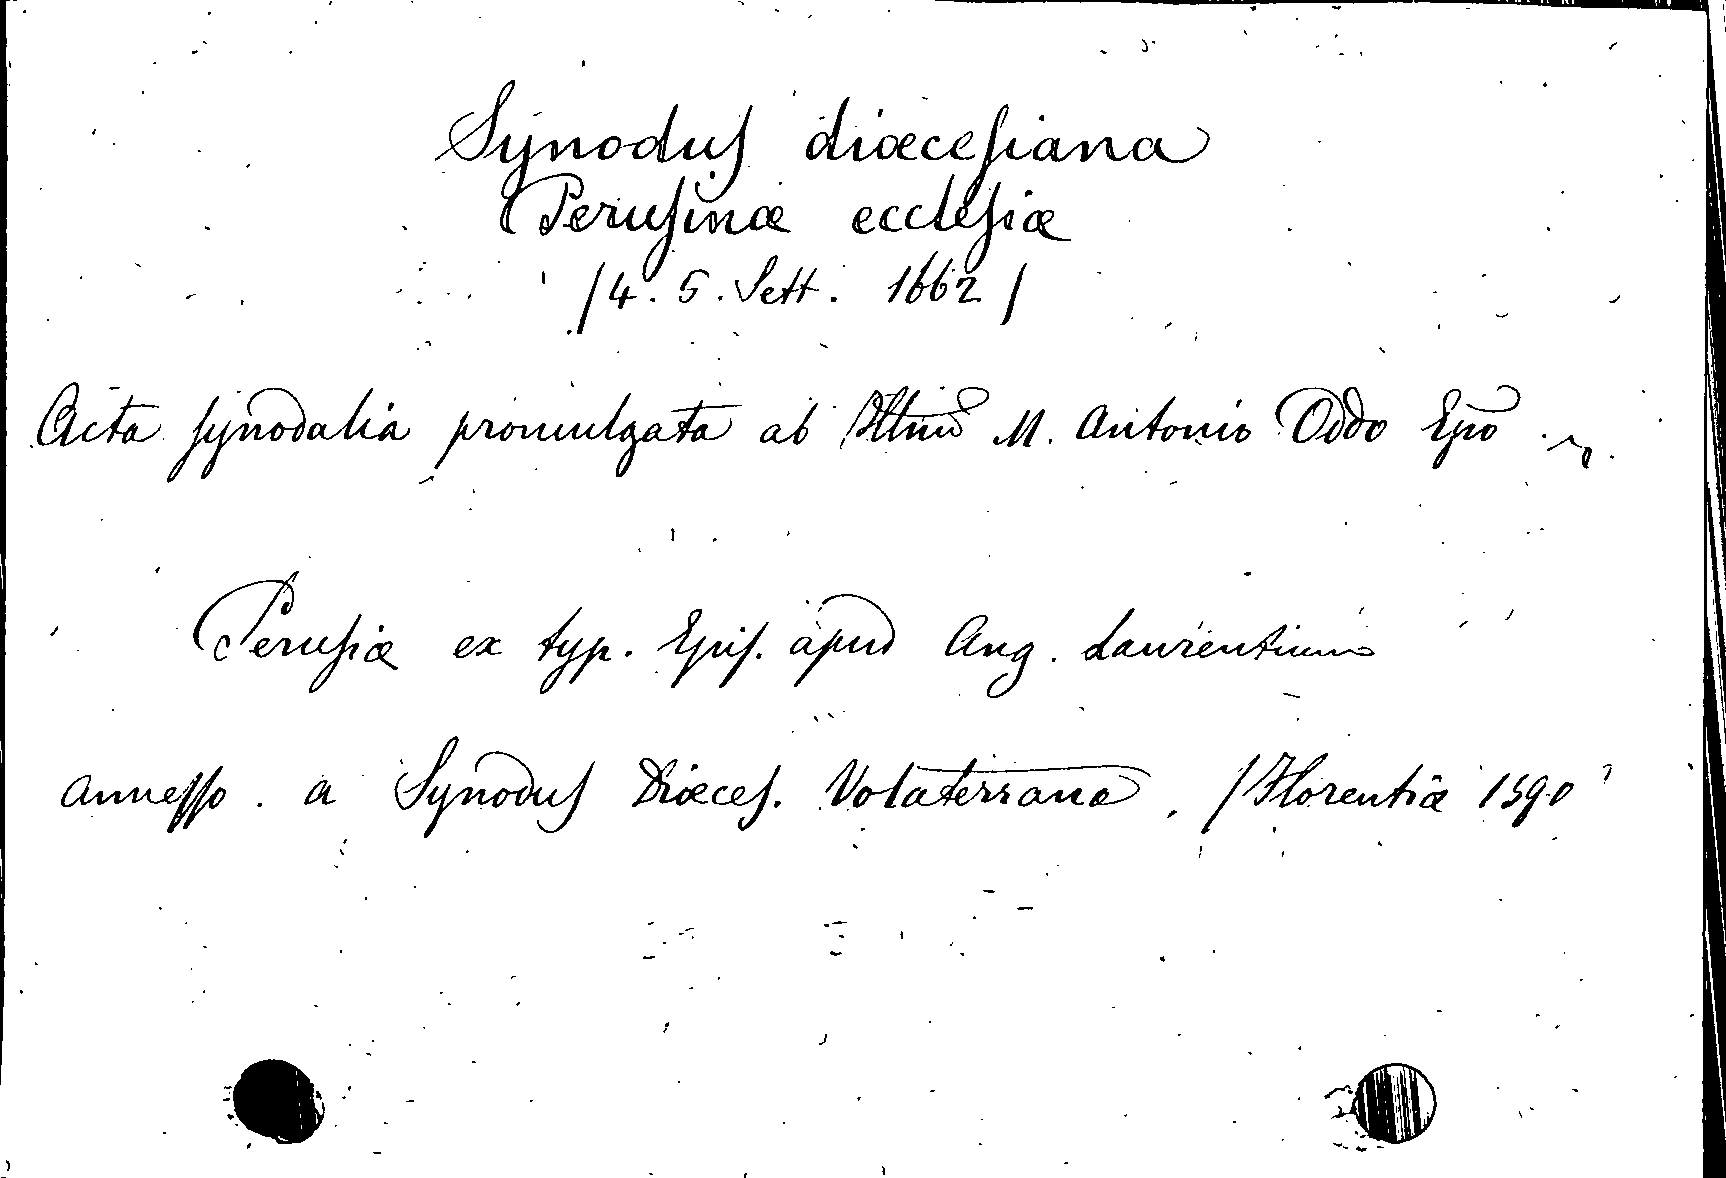 Synodus diœcesiana
Perusinæ ecclesiæ
/4. 5. Sett. 1662/
Acta synodalia promulgata ab Illmo M. Antonio Oddo Epõ
Perusiæ ex typ. Epis. apud Ang. Laurentium
annesso. a Synodus Diœces. Volaterrana. /Florentiæ 1590